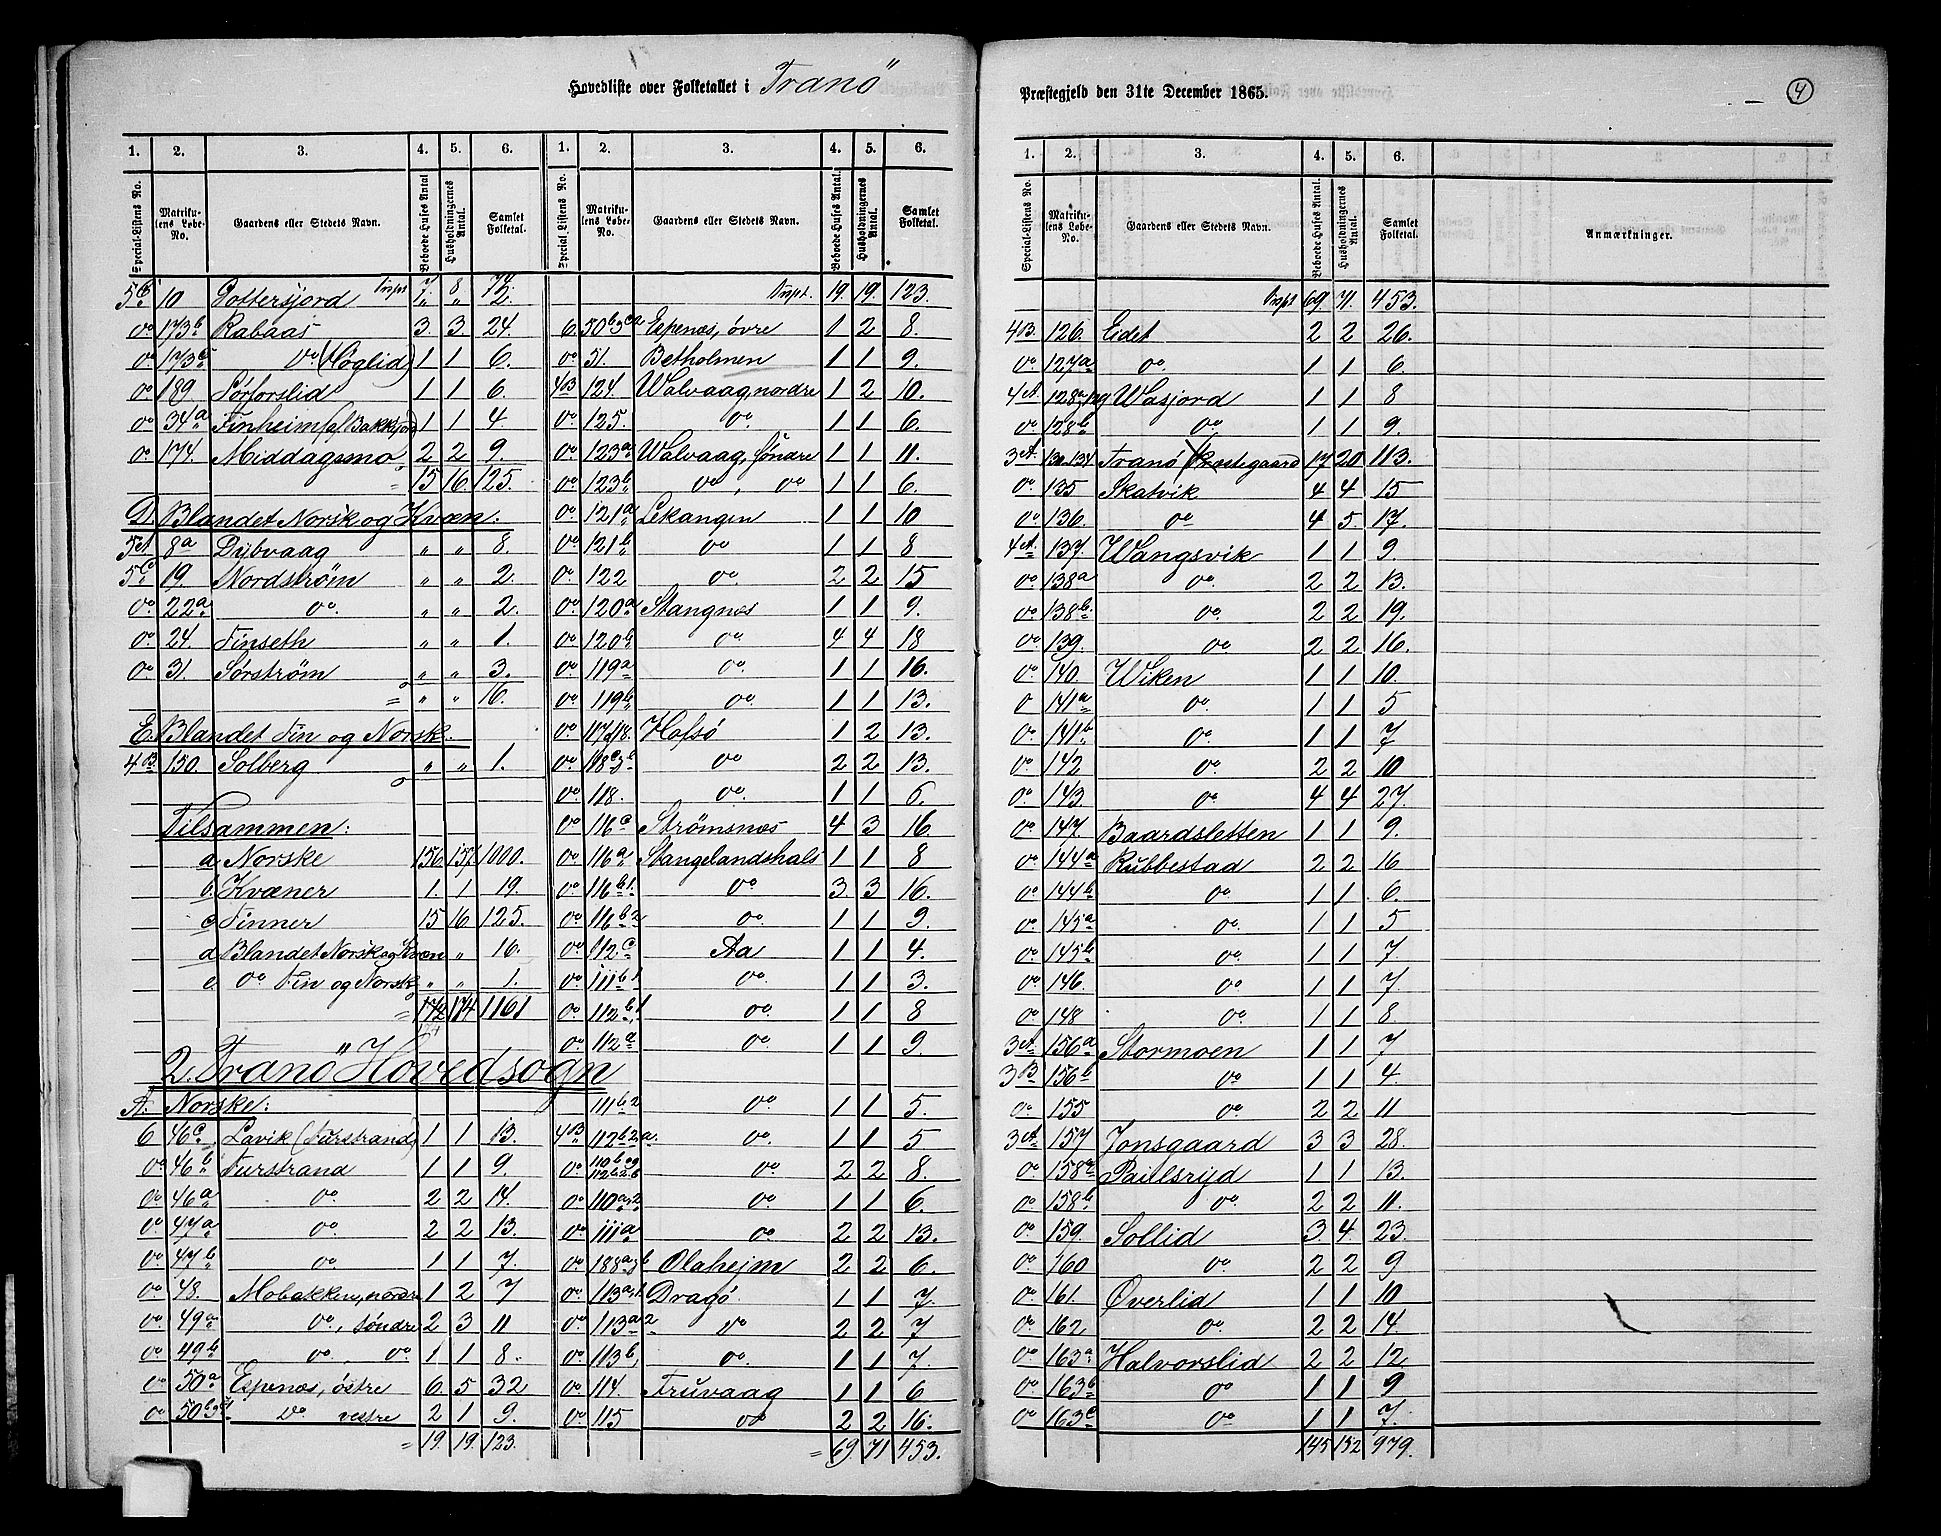 Hovedliste over Folketallet i Tranö
1. 2. 3. 4. 5. 6. 1. 2. 3. 4. 5. 6.
Special-Listens No. Matrikulens Løbe-No. Gaardens eller Stedets Navn. Beboede Huses Antal Husholdningernes Antal. Samlet Folketal. Special Listens No. Matrikulens Løbe-No. Gaardens eller Stedets Navn. Beboede Huses Antal. Husholdningernes Antal. Samlet Folketal.
Trspt 7. 8 72.
5B. 10 Gottersjord " " 2.
do 173b Rabaas 3. 3. 24.
do. 173c do (Høglid) 1 1 6.
do 189. Sørforslid 1 1 6.
do 34a Finheim (a) Bakkejord 1 1 4
do. 174. Middagsmo 2 2 9.
= 15 16. 125.
D. Blandet Norsk og Kvæn.
5A 8a Dybvaag " " 8.
5C. 19. Nordstrøm " " 2.
do 22a do. " " 2.
do. 24. Finseth " " 1.
do 31. Sørstrøm " " 3.
= " " 16.
E. Blandet Fin og Norsk.
4B. 150. Solberg " " 1.
Tilsammen:
a Norske 156. 157. 1000.
b. Kvæner 1. 1 19.
c Finner 15 16 125.
d Blandet Norsk og Kvæn " 16.
e. do Fin og Norsk " " 1.
= 172 174 1161
174
2. Tranö Hovedsogn
A. Norske:
6 46c. Lavik (Furstrand) 1 1 13.
do 46b Furstrand 1 1 9.
do 46a do. 2 2 14.
do. 47a do. 2 2 13.
do 47b do. 1 1 7.
do 48. Mobakken, nordre 1 2 7
do 49a do., søndre 2 3 11
do. 49b do. do. 1 1 8.
do 50a Espenæs, østre 6. 5 32
do 50b do vestre 2 1 9.
= 19. 19. 123.
Trspt. 19. 19. 123.
6. 50b Espenæs, øvre 1 2 8.
do. 51. Betholmen 1 1 9.
4B 124. Walvaag, nordre 1 2 10.
do. 125. do. 1 1 6.
do. 123a Walvaag, søndre 1 1 11.
do. 123b. do, do 1 1 6.
do. 121a Lekangen 1 1 10
do. 121b do 1 1 8
do. 122 do. 2 2 15
do. 120a Stangnæs 1 1 9.
do 120b do. 4 4 18
do. 119a do. 1 1 16.
do 119b do. 1 1 13.
do. 117 & 18. Hofsø 1 2 13.
do. 118c & b do 2 2 13.
do. 118. do. 1 1 5.
do 116c Strømsnæs 4 3 16.
do. 116a Stangelandshals 1 1 8
do. 116b1. do 3. 3 16.
do. 116b2 do 1 1 9.
do. 112c Aa 1 1 4.
do. 111b1 do. 1 1 3.
do. 112b,1 do. 1 1 8
do. 112a do. 1 1 9.
111b2 do. 1 1 5.
4B. 112b2a. do. 1 1 5
do. 110b og 112b2b do 2 2 8.
do. 110a,2 do. 1 1 6.
do. 111a do. 2 2 13.
do. 188a&b Olaheim 2 2 6.
do. 113a,1 Dragø. 1 1 7.
do. 113a2 do 2 2 7
do. 113b, do. 1 1 7.
do. 114. Truvaag 1 1 6
do. 115 do 2 2 16.
= 69. 71 453.
Præstegjeld den 31te December 1865.
4
1. 2. 3. 4. 5. 6.
Special-Listens No. Matrikulens Løbe-No. Gaardens eller Stedets Navn. Beboede Huses Antal. Husholdningernes Antal. Samlet Folketal. Anmærkninger.
Trspt 69. 71. 453.
4B. 126. Eidet 2 2 26.
do. 127a do. 1 1 6.
4A. 128a,129 Wasjord 1 1 8
do. 128b do. 1 1 9.
3A 130-134 Tranö Præstegaard 17 20 113.
do. 135 Skatvik 4 4 15
do. 136. do 4 5 17.
4A. 137. Wangsvik 1 1 9
do. 138a do. 2 2 13.
do. 138b. do. 2 2 19.
do. 139. do. 2 2 16.
do. 140. Wiken 1 1 10.
do 141a do. 1 1 5
do. 141b do. 1 1 7
do. 142 do. 2 2 10
do. 143. do. 4 4 27.
do. 147. Baardsletten 1 1 9.
do. 144a Rubbestad 2 2 16
do. 144b do. 1 1 6.
do. 145a do. 1 1 5
do. 145b do. 1 1 7.
do. 146 do. 1 1 7
do. 148 do. 1 1 8.
3A. 156a Stormoen 1 1 7
3B 156b do 1 1 4.
do. 155 do 2 2 11
3A. 157 Jonsgaard 3 3 28.
do. 158a Paulsryd 1 1 13.
do. 158b do. 2 2 11.
do. 159. Sollid 3 4 23.
do. 160 do. 2 2 9
do. 161. Øverlid 1 1 10
do. 162. do. 2 2 14.
do. 163a. Halvorslid 2 2 12
do. 163b do 1 1 9
do. 163c do 1 1 7.
145 152 979.